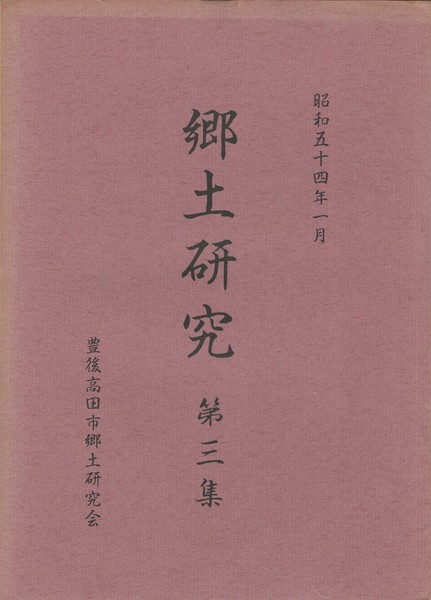 昭和五十四年一月
郷土研究 第三集
豊後高田市郷土研究会